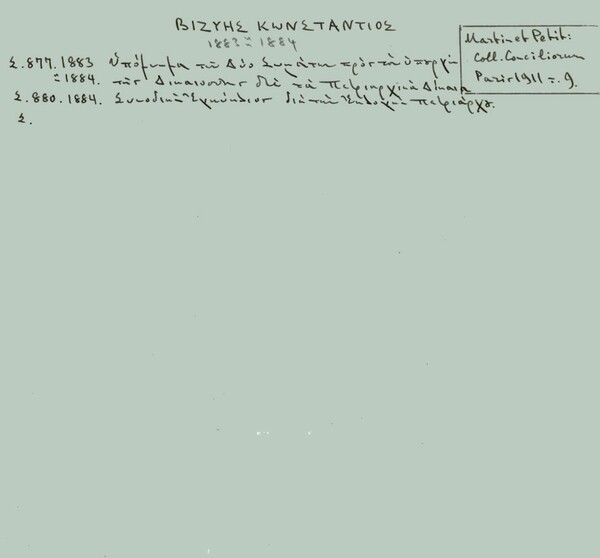 ΒΙΖΥΗΣ ΚΩΝΣΤΑΝΤΙΟΣ
1883 ≈ 1884
Martin et Petit:
Coll. Conciliorum
Paris 1911 = . 9.
Σ. 877. 1883 Υπόμνημα των Δύο Σωμάτων πρός το υπουργείο
≈ 1884. της Δικαιοσύνης διά τα Πατριαρχικά Δίκαια
Σ. 880. 1884. Συνοδική Εγκύκλιος διά την Εκλογήν Πατριάρχο.
Σ.